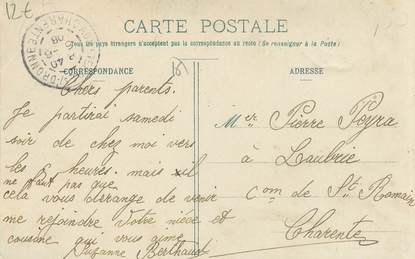 12€
CARTE POSTALE
Tous les pays étrangers n'acceptent pas la correspondance au recto (Se renseigner à la Poste)
CORRESPONDANCE
Chers parents.
Je partirai samedi
soir de chez moi vers
les 6 heures. mais il
ne faut pas que
cela vous dérange de venir
me rejoindre votre nièce et
cousine qui vous aime
Suzanne Berthaud
ADRESSE
Mer Pierre Peyra
à Laubrie
Com de St Romain
Charente